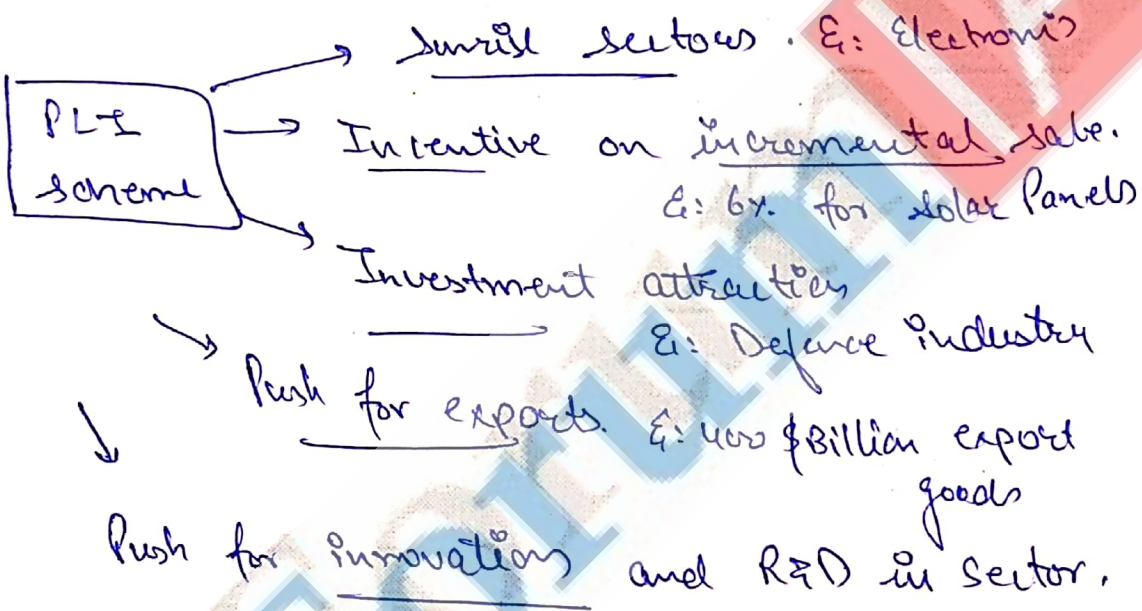 Sunrise sectors. Eg: Electronics
PLI
scheme
Incentive on incremental sale.
Eg: 6% for solar Panels
Investment attraction
Eg: Defence industry
Push for exports. Eg: 400 $Billion export
goods
Push for innovations and R&D in sector.